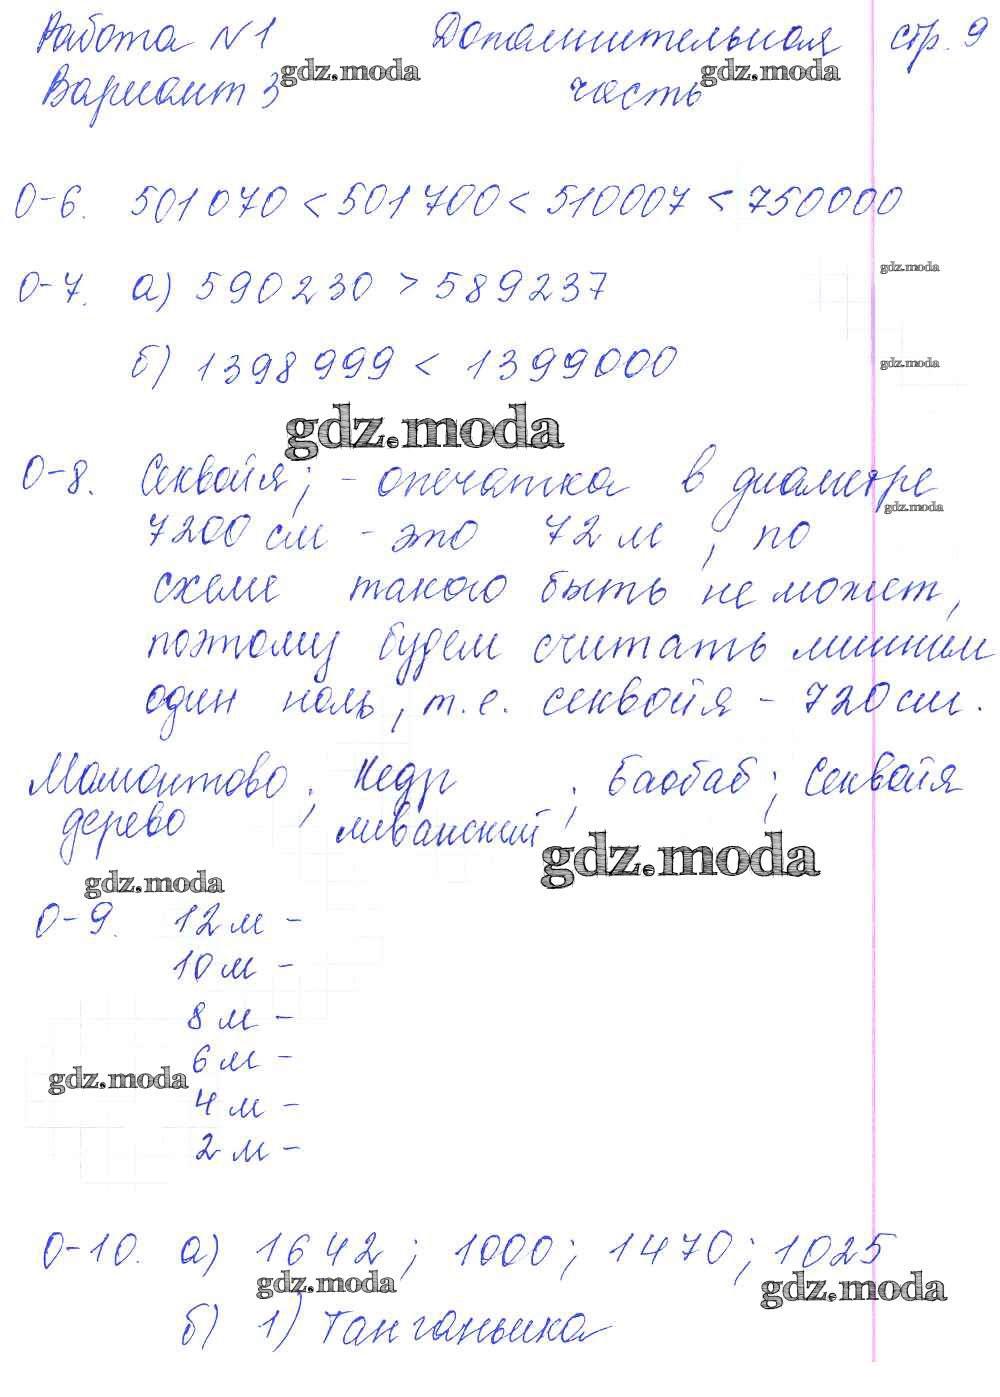 Работа №1 Дополнительная стр. 9
gdz.moda gdz.moda
Вариант 3 часть
0-6. 501070 < 501700 < 510007 < 750000
gdz.moda
0-7. а) 590230 > 589237
б) 1398999 < 1399000
gdz.moda
gdz.moda
0-8. Секвойя; - опечатка в диаметре
gdz.moda
7200 см - это 72 м, по
схеме такого быть не может,
поэтому будем считать лишним
один ноль, т.е. секвойя - 720 см.
Мамонтово ; Кедр ; Баобаб ; Секвойя
дерево ливанский
gdz.moda
gdz.moda
0-9. 12 м -
10 м -
8 м -
6 м -
gdz.moda
4 м -
2 м -
0-10. а) 1642 ; 1000 ; 1470 ; 1025
gdz.moda gdz.moda
б) 1) Танганьика